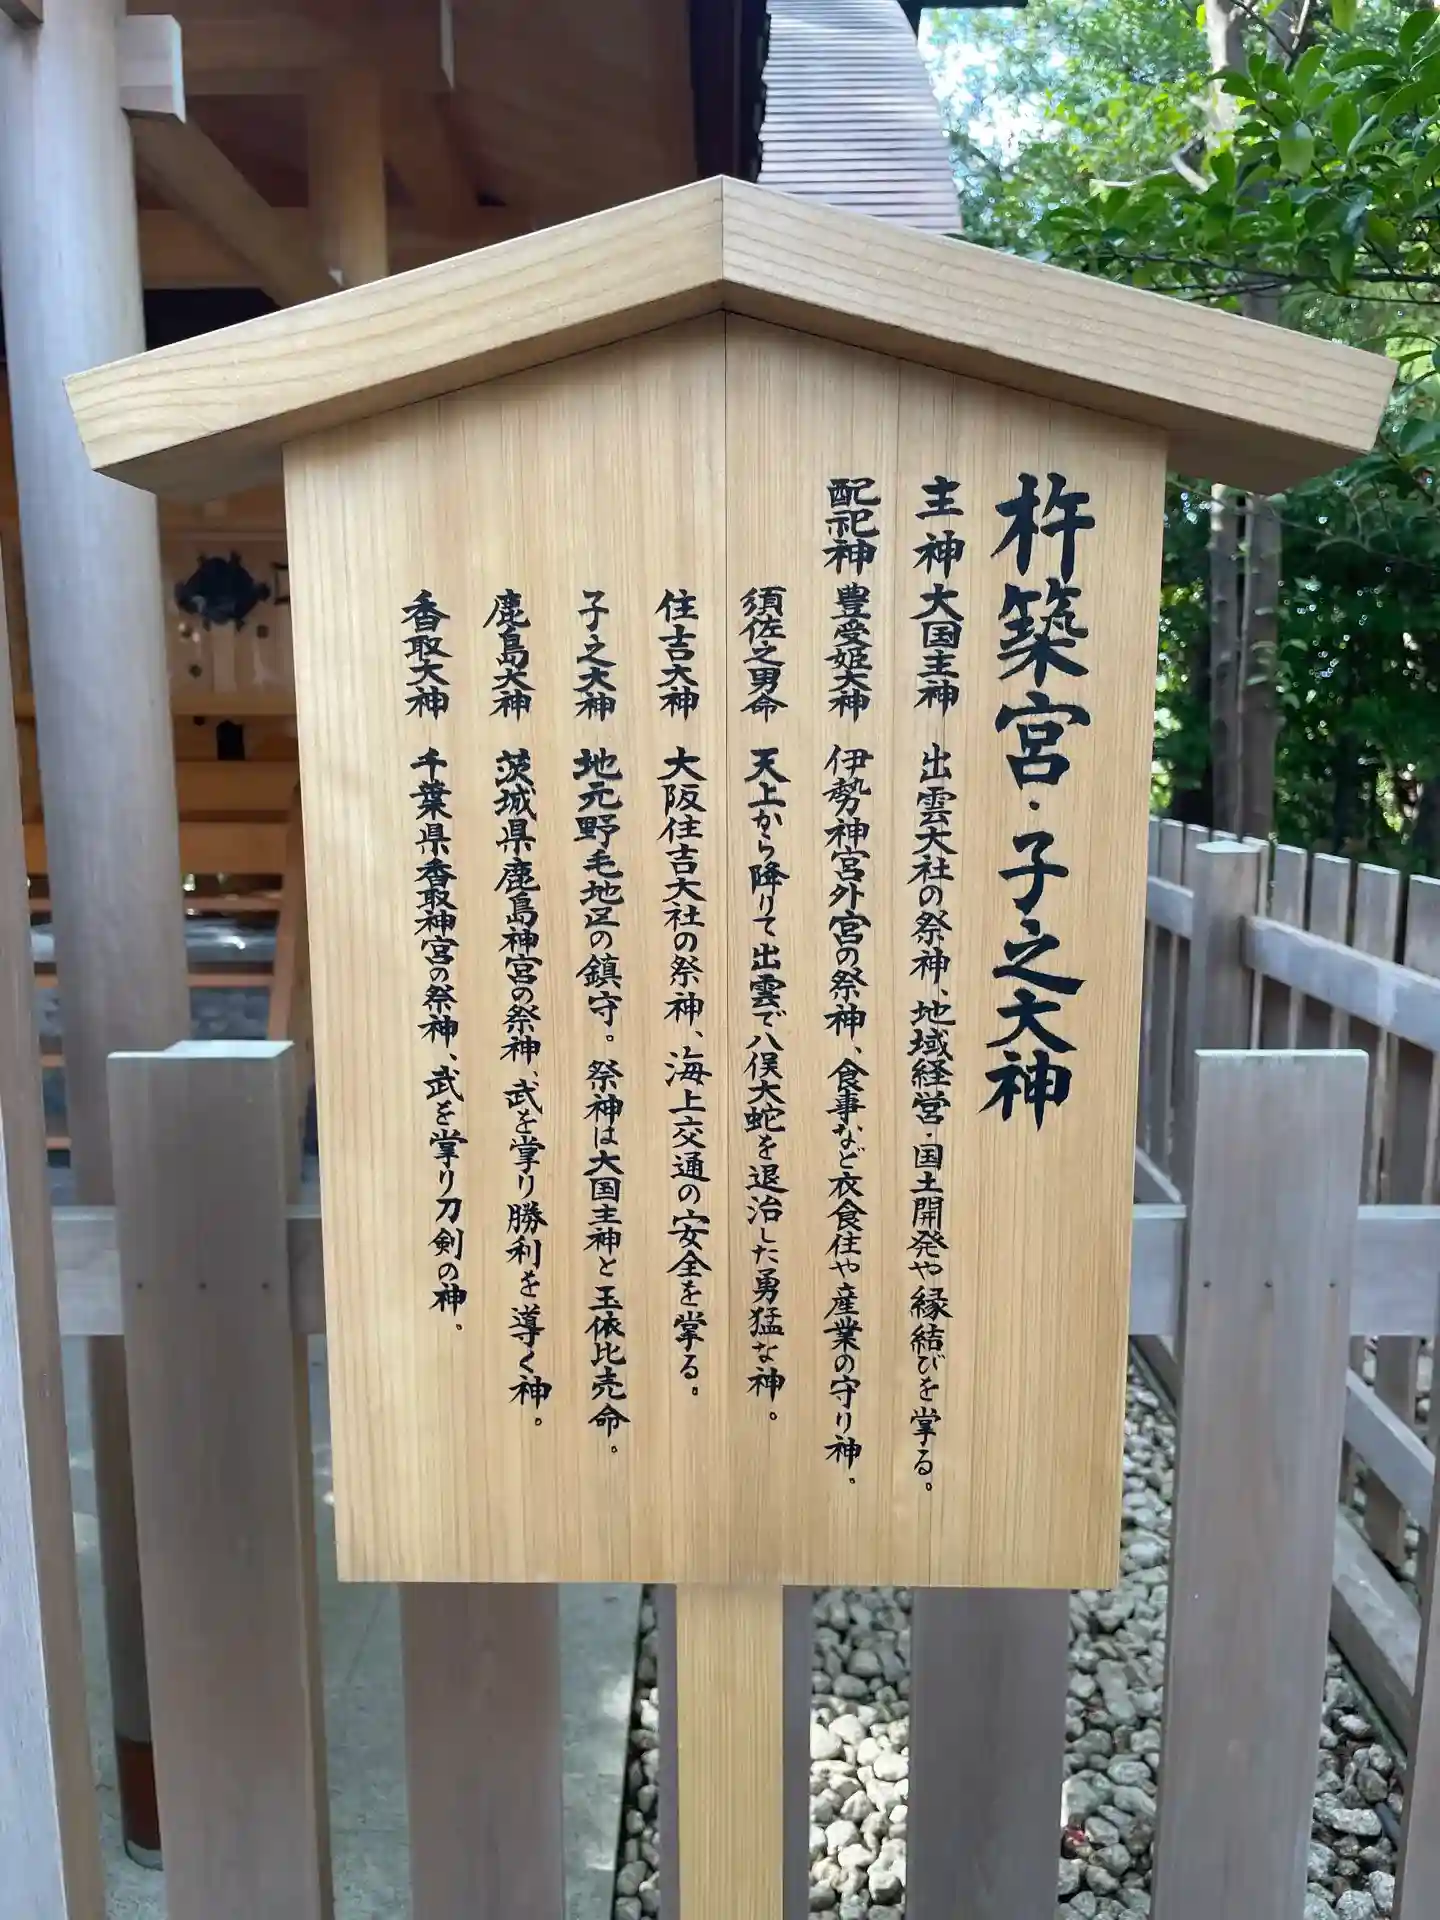 杵築宮・子之大神
主神 大国主神 出雲大社の祭神、地域経営・国土開発や縁結びを掌る。
配祀神 豊受姫大神 伊勢神宮外宮の祭神、食事など衣食住や産業の守り神。
須佐之男命 天上から降りて出雲で八俣大蛇を退治した勇猛な神。
住吉大神 大阪住吉大社の祭神、海上交通の安全を掌る。
子之大神 地元野毛地区の鎮守。祭神は大国主神と玉依比売命。
鹿島大神 茨城県鹿島神宮の祭神、武を掌り勝利を導く神。
香取大神 千葉県香取神宮の祭神、武を掌り刀剣の神。